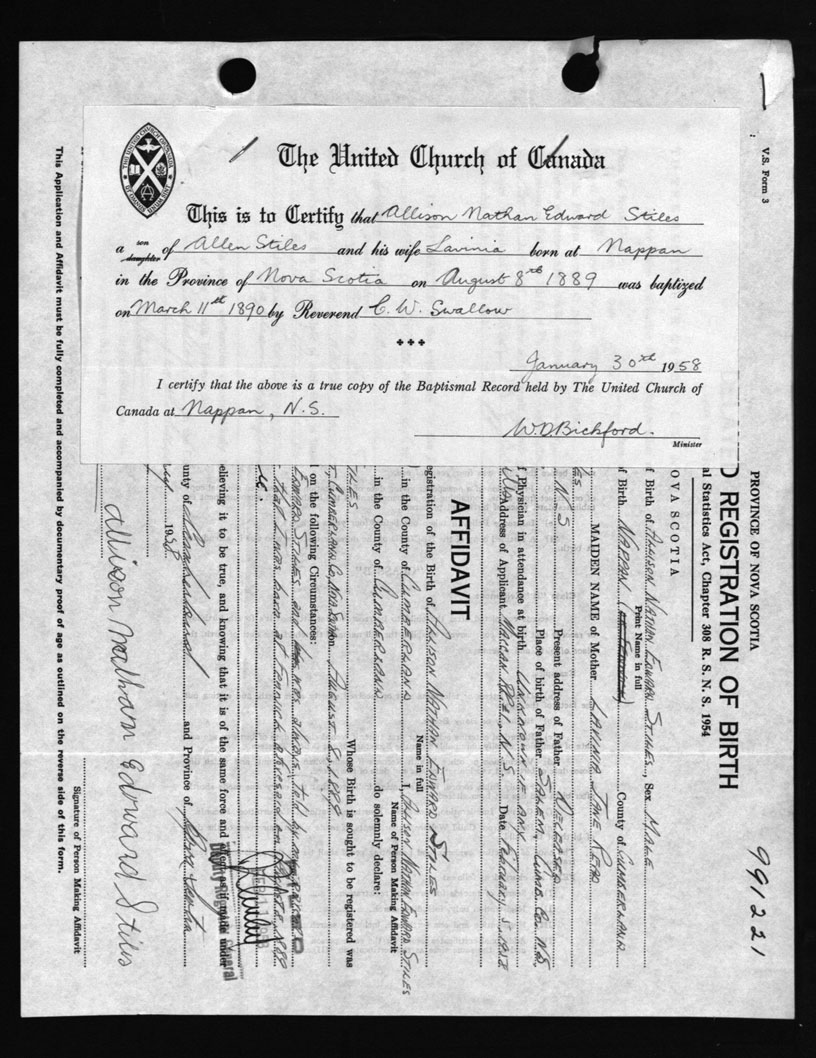 The United Church of Canada
This is to Certify that Allison Nathan Edward Stiles
a son daughter of Allen Stiles and his wife Lavinia born at Nappan
in the Province of Nova Scotia on August 8th 1889 was baptized
on March 11st 1890 by Reverend C. W. Swallow
January 30th 1958
I certify that the above is a true copy of the Baptismal Record held by The United Church of
Canada at Nappan, N.S.
W.D. Bickford.
Minister
V.S. Form 3
991221
PROVINCE OF NOVA SCOTIA
REGISTRATION OF BIRTH
al Statistics Act, Chapter 308 R. S. N. S. 1954
OVA SCOTIA
f Birth of Allison Nathan Edward Stiles, Sex Male
Print Name in full
f Birth Nappan County of Cumberland
MAIDEN NAME of Mother Lavinia Jane
N S Present address of Father Deceased
Place of birth of Father Salem, Cumb. Co. N.S.
f Physician in attendance at birth
Address of Applicant N.S. Date February 5 1958
AFFIDAVIT
egistration of the Birth of Allison Nathan Edward Stiles
Name in full
in the County of Cumberland I, Allison Nathan Edward Stiles
Name of Person Making Affidavit
in the County of Cumberland do solemnly declare:
Whose Birth is sought to be registered was
Cumberland Co, Nova Scotia on August 8, 1889
on the following Circumstances:
Edward Stiles and was always told by my
that I was born at on August 8, 1889
elieving it to be true, and knowing that it is of the same force and made under
unty of Cumberland and Province of Nova Scotia
1958
Allison Nathan Edward Stiles
Signature of Person Making Affidavit
This Application and Affidavit must be fully completed and accompanied by documentary proof of age as outlined on the reverse side of this form.